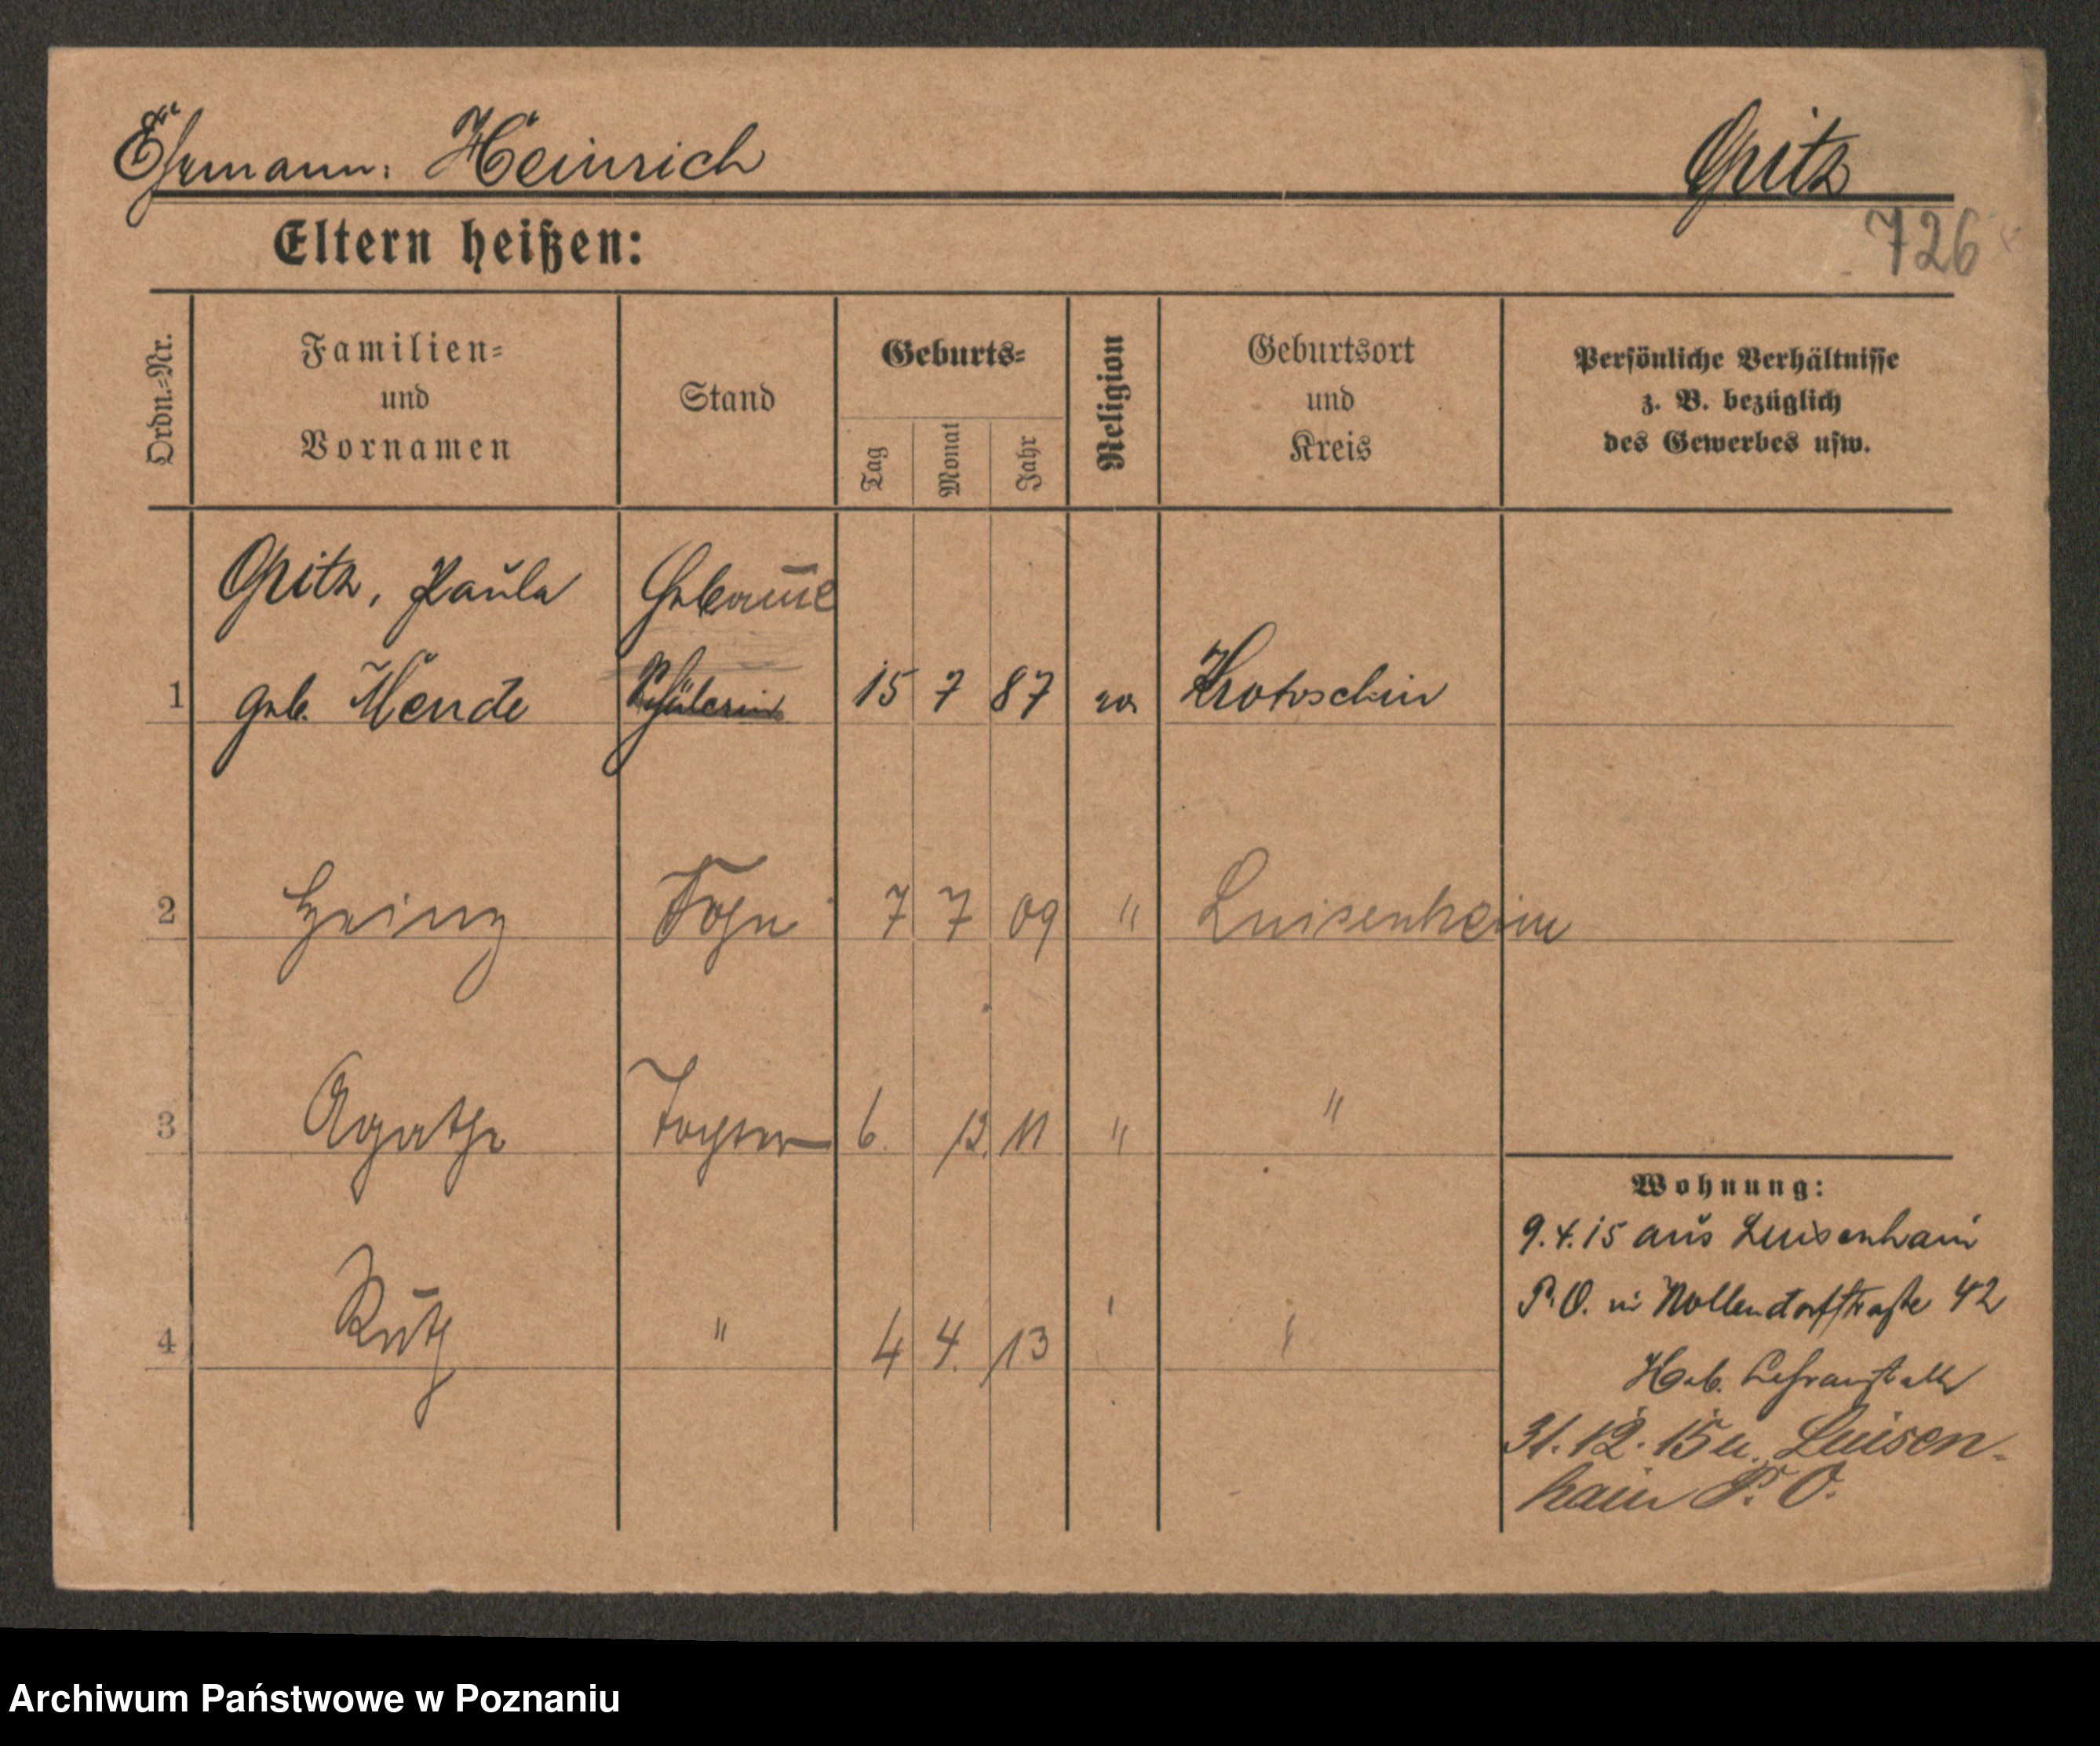 Ehemann: Heinrich Opitz
Eltern heißen:
726
Ordn.-Nr.
Familien- und Vornamen
Stand
Geburts-
Tag
Monat
Jahr
Religion
Geburtsort und Kreis
Persönliche Verhältnisse
z. B. bezüglich
des Gewerbes usw.
Opitz, Paula Hebamme
1 geb. Mende Schülerin 15 7 87 ev. Krotoschin
2 Heinz Sohn 7 7 09 " Luisenhein
3 Agathe Tochter 6. 12. 11 " "
4 Ruth " 4 4. 13 ' '
Wohnung:
9.4.15 aus Luisenhain
P.O. in Nollendorfstraße 42
Heb. Lehranstalt
31.12.15 n. Luisen-
hain P.O.
Archiwum Państwowe w Poznaniu